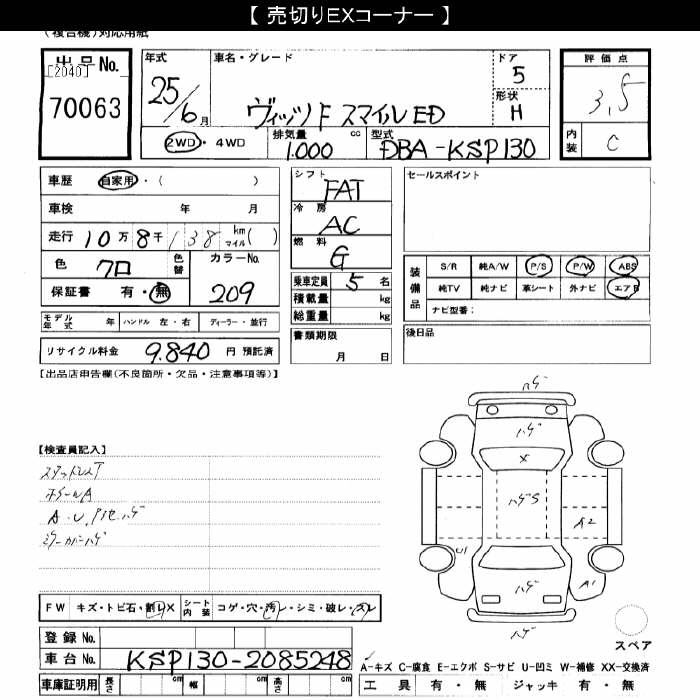 【 売切りEXコーナー 】
(複合機)対応用紙
出品No.
[2040]
70063
年式
25/6月
車名・グレード
ヴィッツ F スマイルED
ドア
5
形状
H
評価点
3.5
内装
C
2WD・4WD
排気量
1.000 cc
型式
DBA-KSP130
車歴 自家用・( )
車検 年 月
走行 10万8千138 km マイル( )
色 クロ 色替 カラーNo.
209
保証書 有・無
モデル年式 年 ハンドル 左・右 ディーラー・並行
リサイクル料金 9.840 円 預託済
シフト
FAT
冷房
AC
燃料
G
乗車定員 5 名
積載量 kg
総重量 kg
書類期限
月 日
セールスポイント
装備品
S/R 純A/W P/S P/W ABS
純TV 純ナビ 革シート 外ナビ エアB
ナビ型番:
後日品
【出品店申告欄(不良箇所・欠品・注意事項等)】
【検査員記入】
スタッドレスT
ホイールA
A・U,P他ハゲ
ミラーカバーハゲ
ハゲ
ハゲ
X
ハゲS
A2
U1
A1
ハゲ
ハゲ
スペア
FW キズ・トビ石・割レX シート内装 コゲ・穴・汚レ・シミ・破レ・スレ
登録No.
車台No. KSP130-2085248
車庫証明用 長さ cm 幅 cm 高さ cm
A-キズ C-腐食 E-エクボ S-サビ U-凹ミ W-補修 XX-交換済
工具 有・無 ジャッキ 有・無